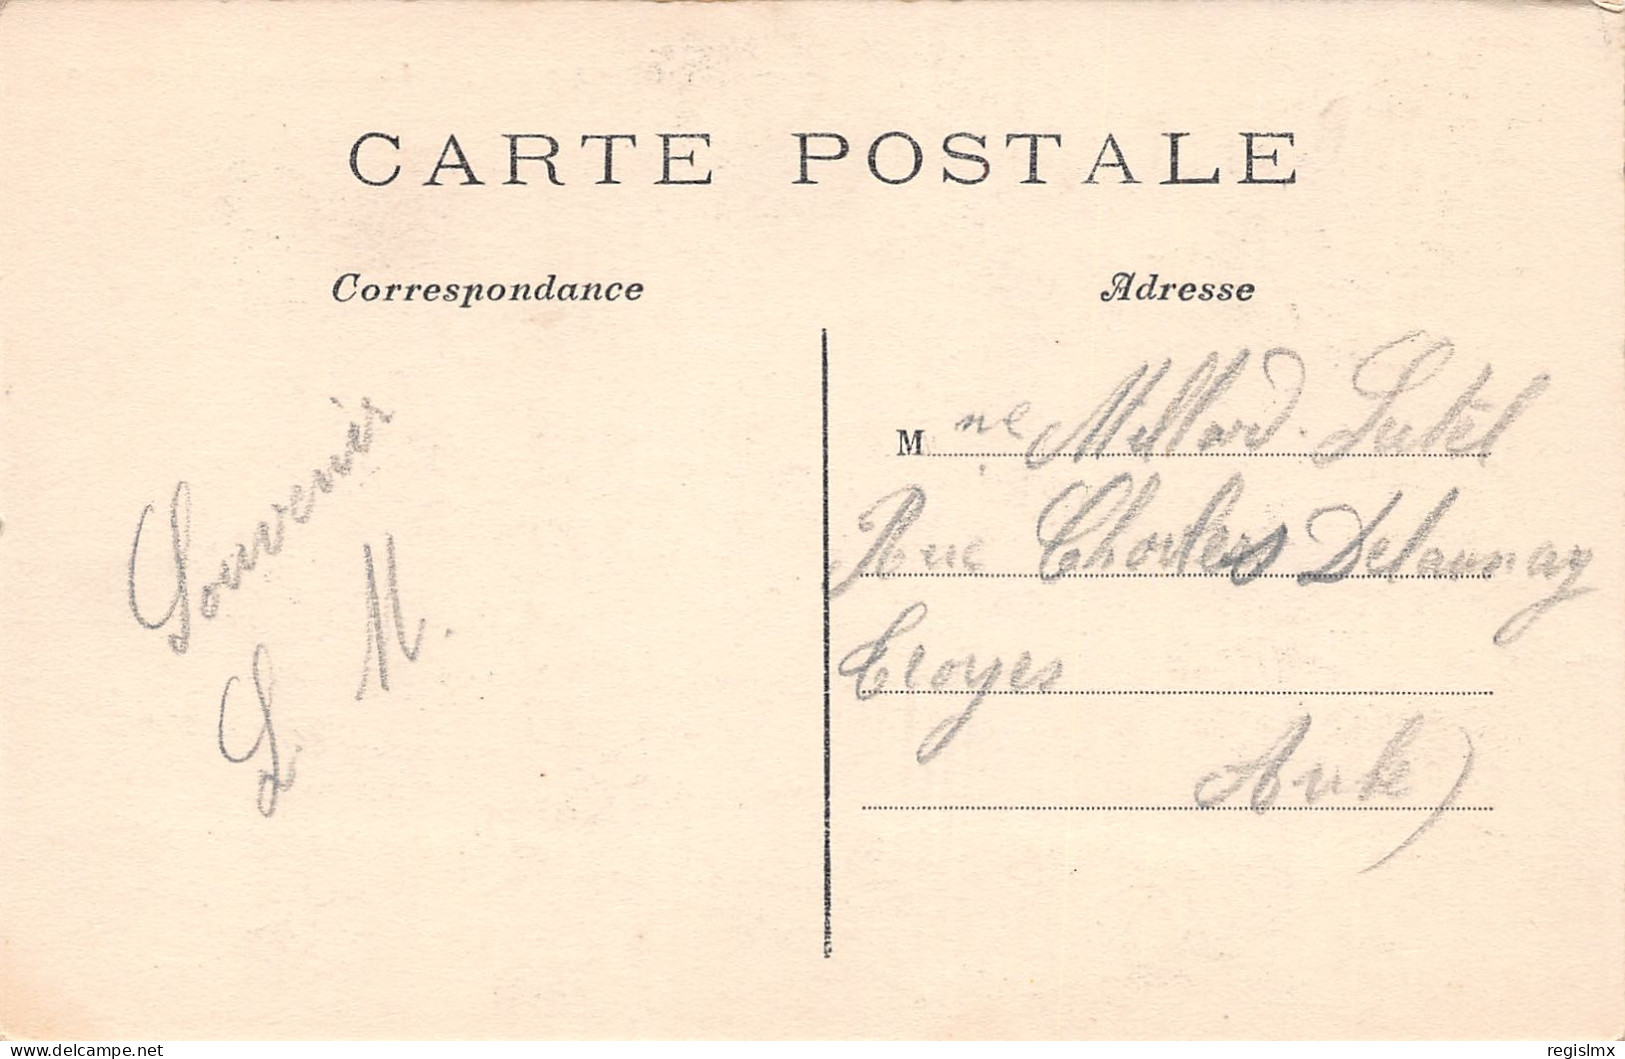 CARTE POSTALE
Correspondance
Adresse
Souvenir
L M.
Mme Millard. Lutel
Rue Charles Delaunay
Troyes
Aube)
delcampe.net
regislmx